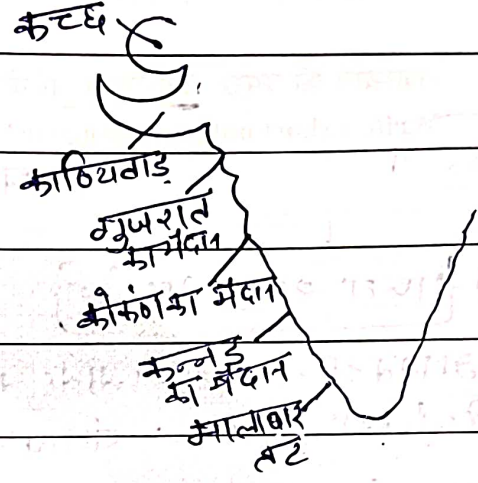 कच्छ
काठियवाड़
गुजरात
का मैदान
कोकंण का मैदान
कन्नड़
का मैदान
मालाबार
तट